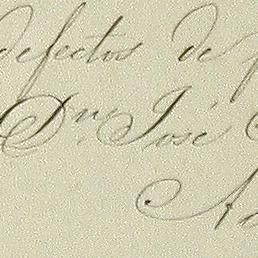 defectos de
Dn. José